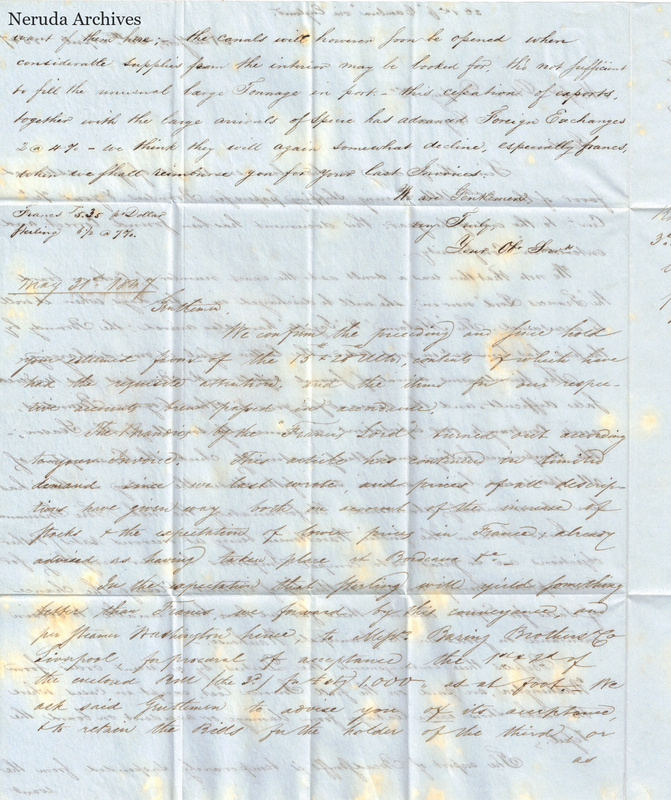 Neruda Archives
want of them here; the canals will however soon be opened when
considerable supplies from the interior may be looked for, tho not sufficient
to fill the unusual large Tonnage in port. - this cessation of exports,
together with the large arrivals of Specie has advanced Foreign Exchanges
2 a 4 % - we think they will again somewhat decline, especially francs,
when we shall reimburse you for your last Invoices.
We are Gentlemen
Francs 5.35 pr Dollar
very Truly
Sterling a 7%.
Your Ob. Serv.ts
May 31st 1847
Gentlemen
We confirm the preceding and since hold
your esteemed favors of the 15 & 28 Ulto, contents of which have
had the requisite attention and the items for our respec-
tive accounts been passed in accordance.
The Brandies by the "Francis Lord" turned out according
to your Invoice. This article has continued in limited
demand since we last wrote, and prices of all descrip-
tions have given way both on account of the increase of
stocks & the expectation of lower prices in France, already
advised as having taken place at Bordeaux &c
In the expectation that sterling will yield something
better than Francs we forward by this conveyance and
per steamer Washington hence to Messrs Baring Brothers & Co
Liverpool for procural of acceptance the 1st & 2d of
the enclosed Bill (the 3d) for £ Stg 1,000 - as at foot. We
ask said Gentlemen to advise you of its acceptance,
& to retain the Bills for the holder of the third, or
as